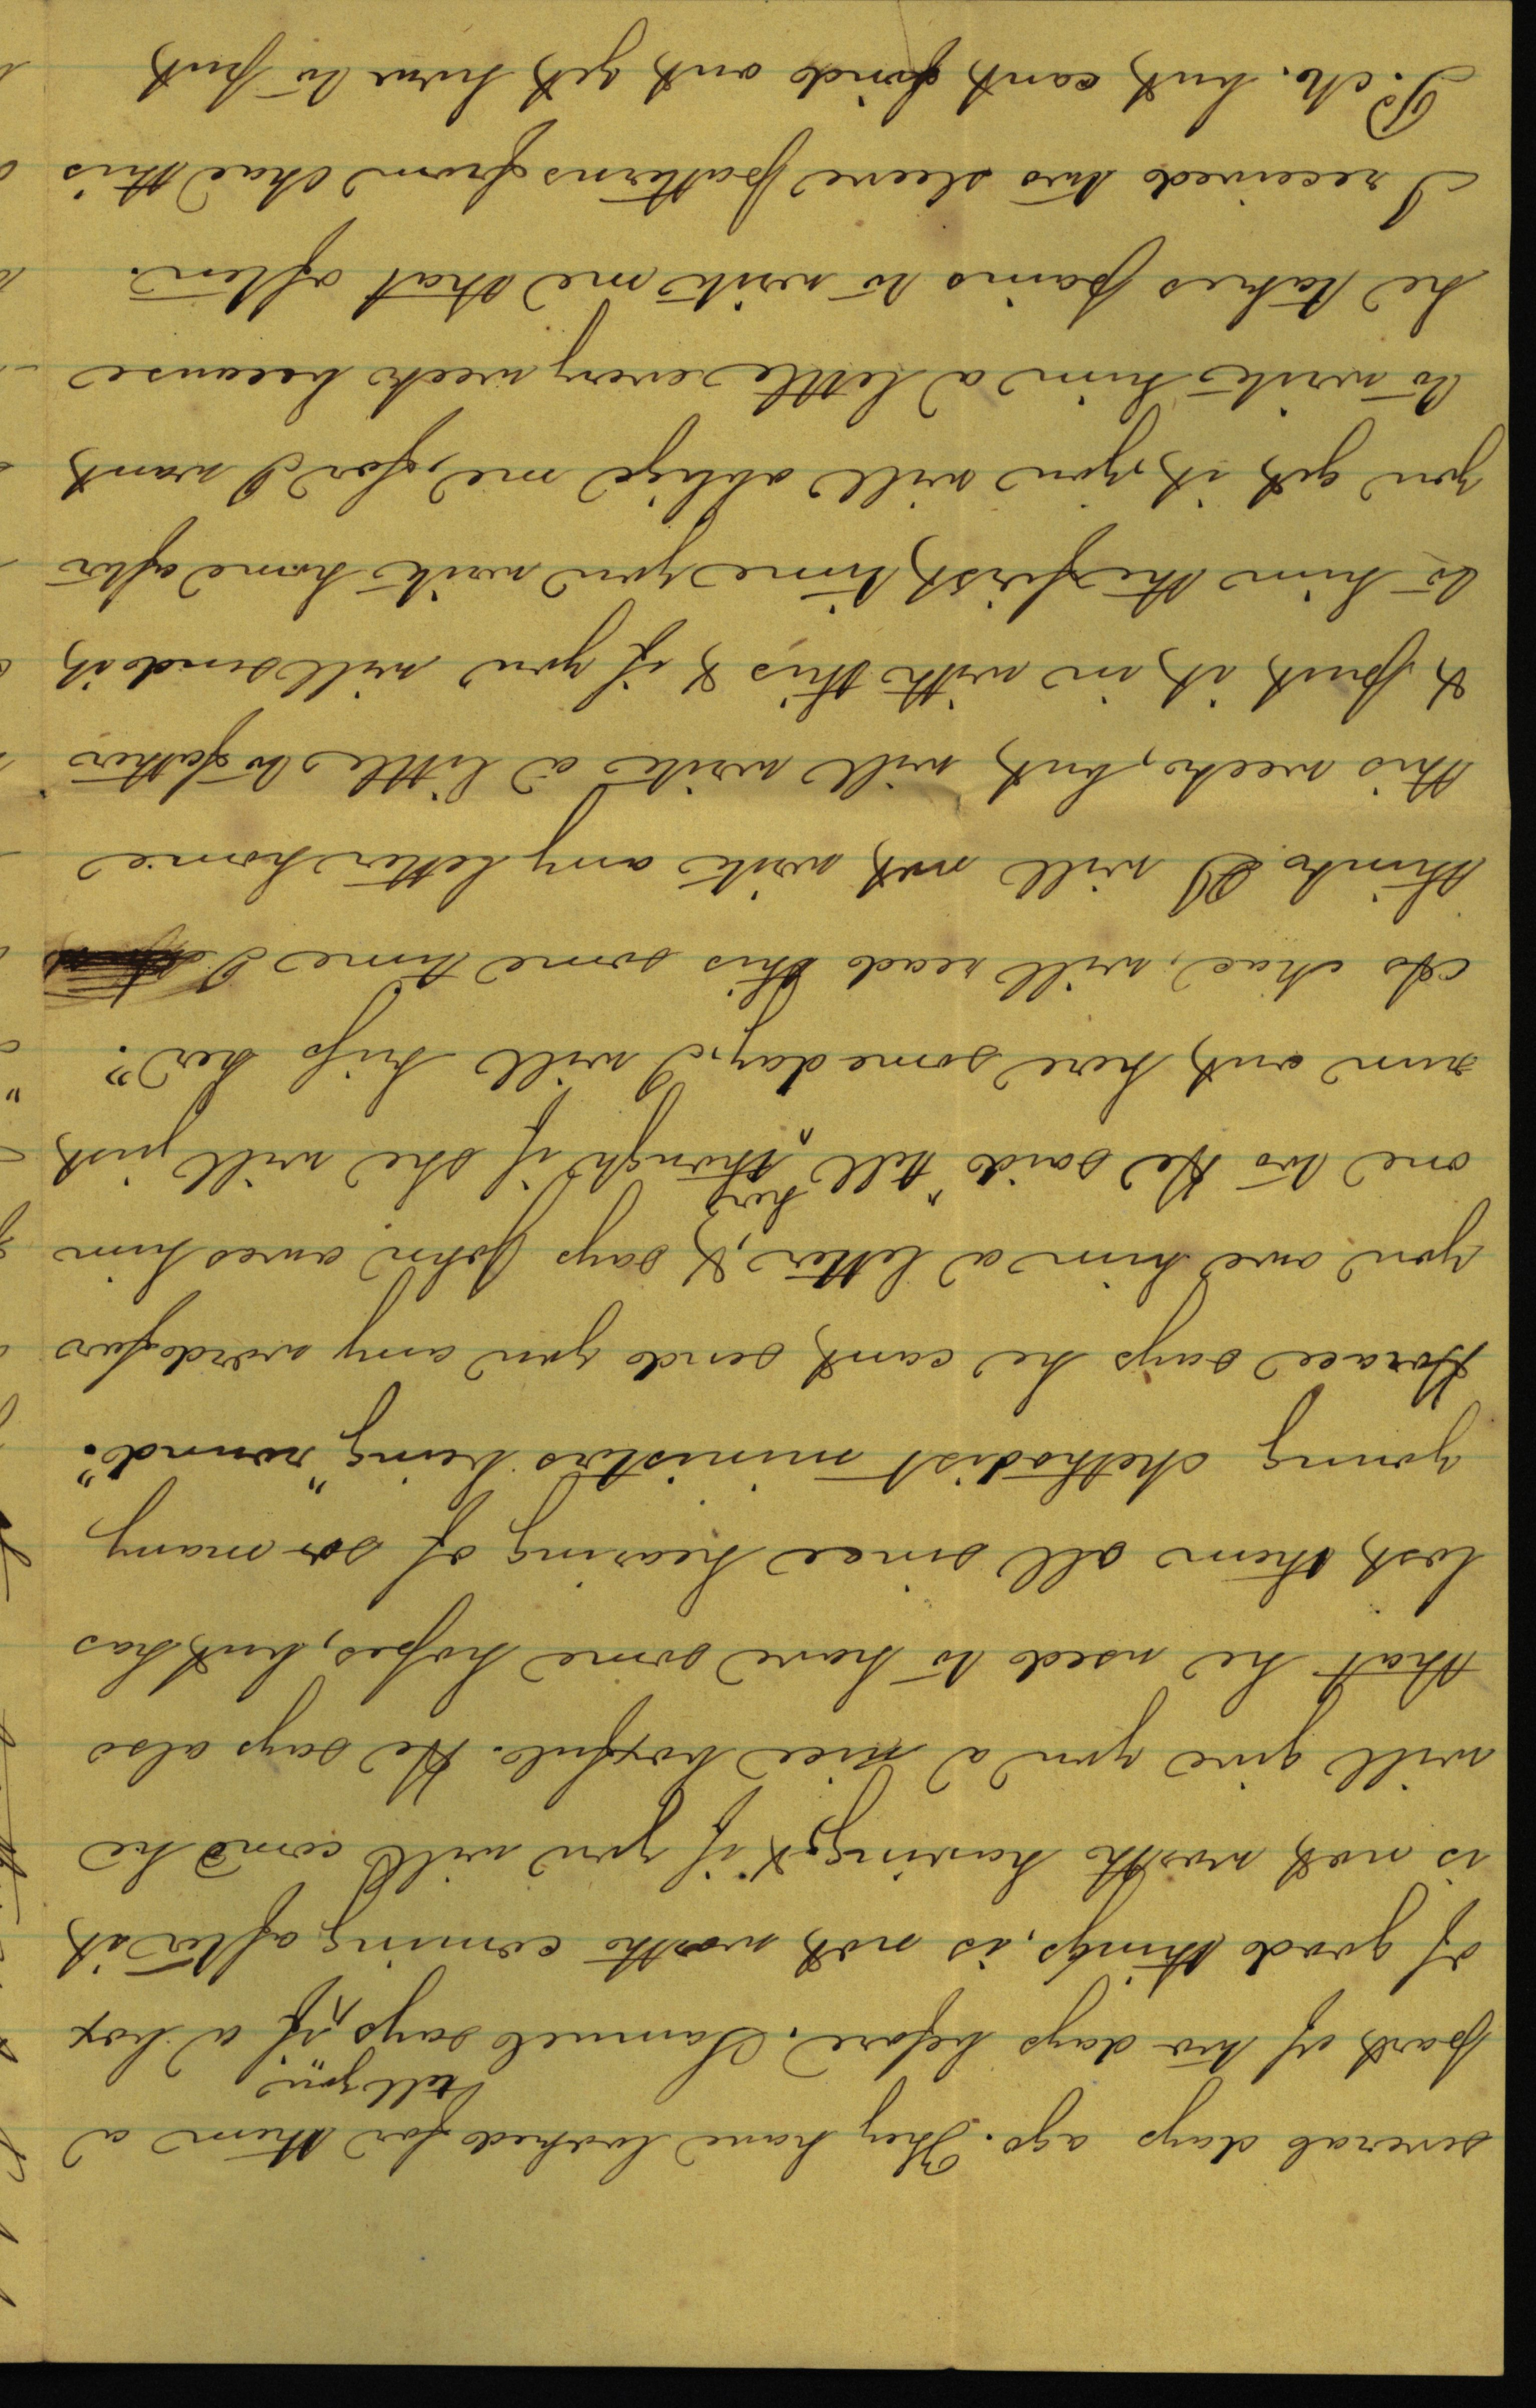 several days ago. They have looked for them a
part of two days before. Samuel says, tell you if a box
of good things, is not worth coming after it
is not worth having, & if you will come he
will give you a nice boxful. He says also
that he used to have some hopes, but has
lost them all since hearing of so many
young Methodist ministers being "round."
Horace says he cant send you any word for
you owe him a letter, & says John owes him
one too He said "tell her, though if she will just
run out here some day, I will kiss her".
As Mae, will read this some time I
think I will not write any letter home
this week, but will write a little to father
& put it in with this & if you will send it
to him the first time you write home after
you get it, you will oblige me, for I want
to write him a little every week because
he takes pains to write me that often.
I received two sleeve patterns from Mae this
P.M. but cant find out yet how to put